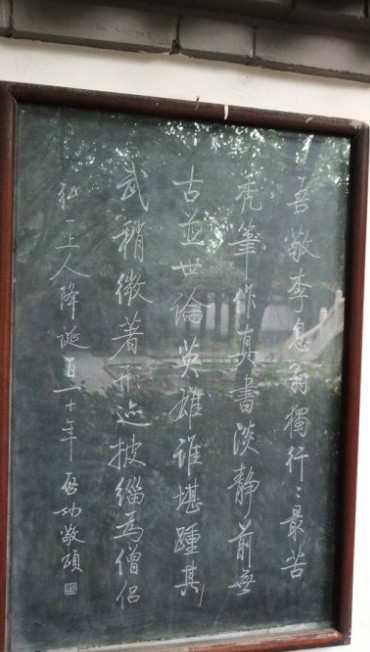 吾敬李息翁獨行〻最苦
禿筆作真書淡靜前無
古並世論英雄誰堪踵其
武稍微著形迹披緇為僧侶
弘一上人降誕百一十年 啓功敬頌